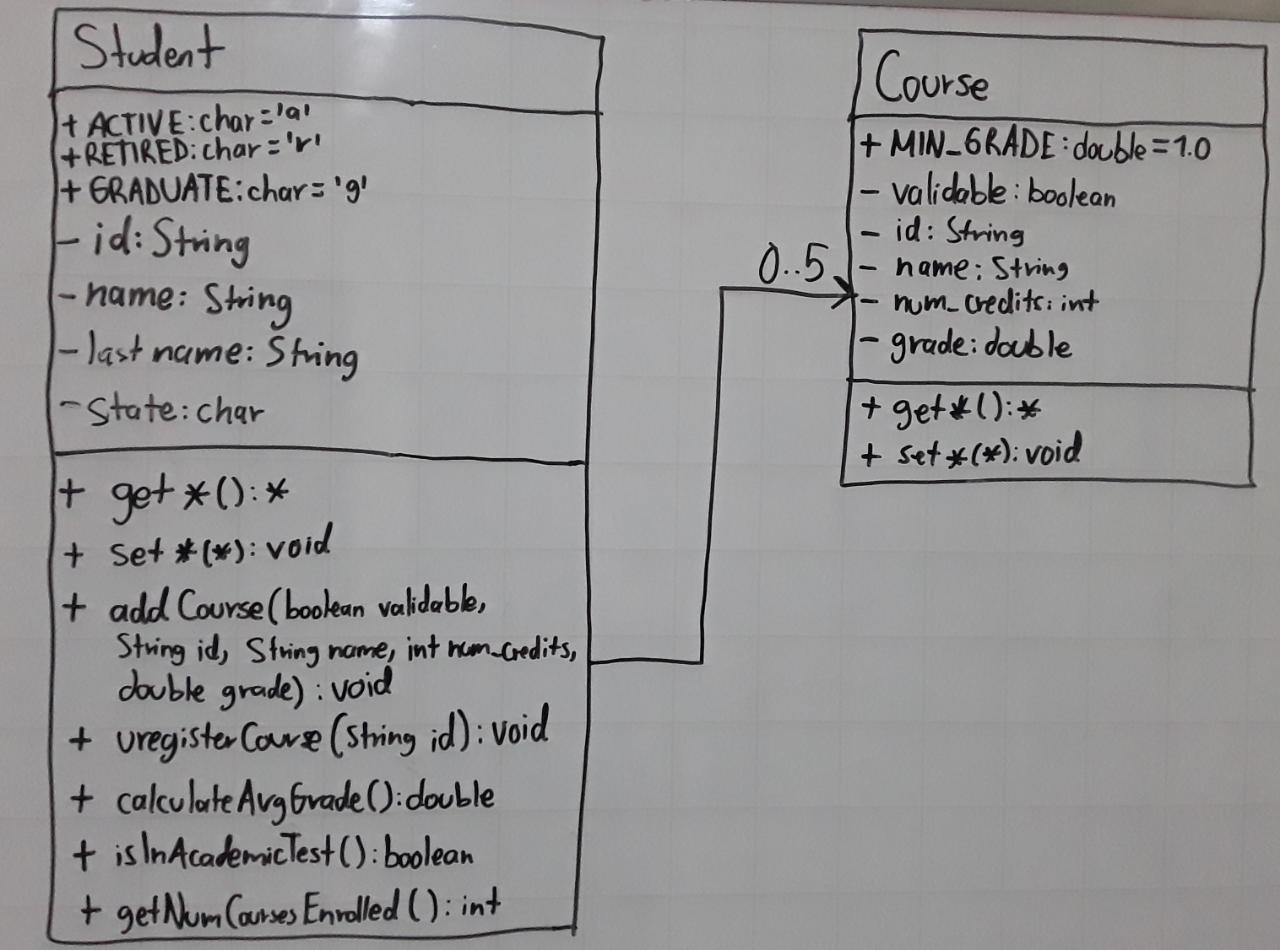 Student
+ ACTIVE:char='a'
+RETIRED:char='r'
+ GRADUATE:char='g'
- id:String
- name: String
- last name: String
- State:char
+ get *():*
+ set *(*): void
+ addCourse(boolean validable,
String id, String name, int num_credits,
double grade) : void
+ uregisterCourse (String id): void
+ calculateAvgGrade():double
+ isInAcademicTest():boolean
+ getNumCoursesEnrolled(): int
0..5
Course
+ MIN_GRADE:double=1.0
- validable: boolean
- id: String
- name: String
- num_credits: int
- grade:double
+ get*():*
+ set *(*): void